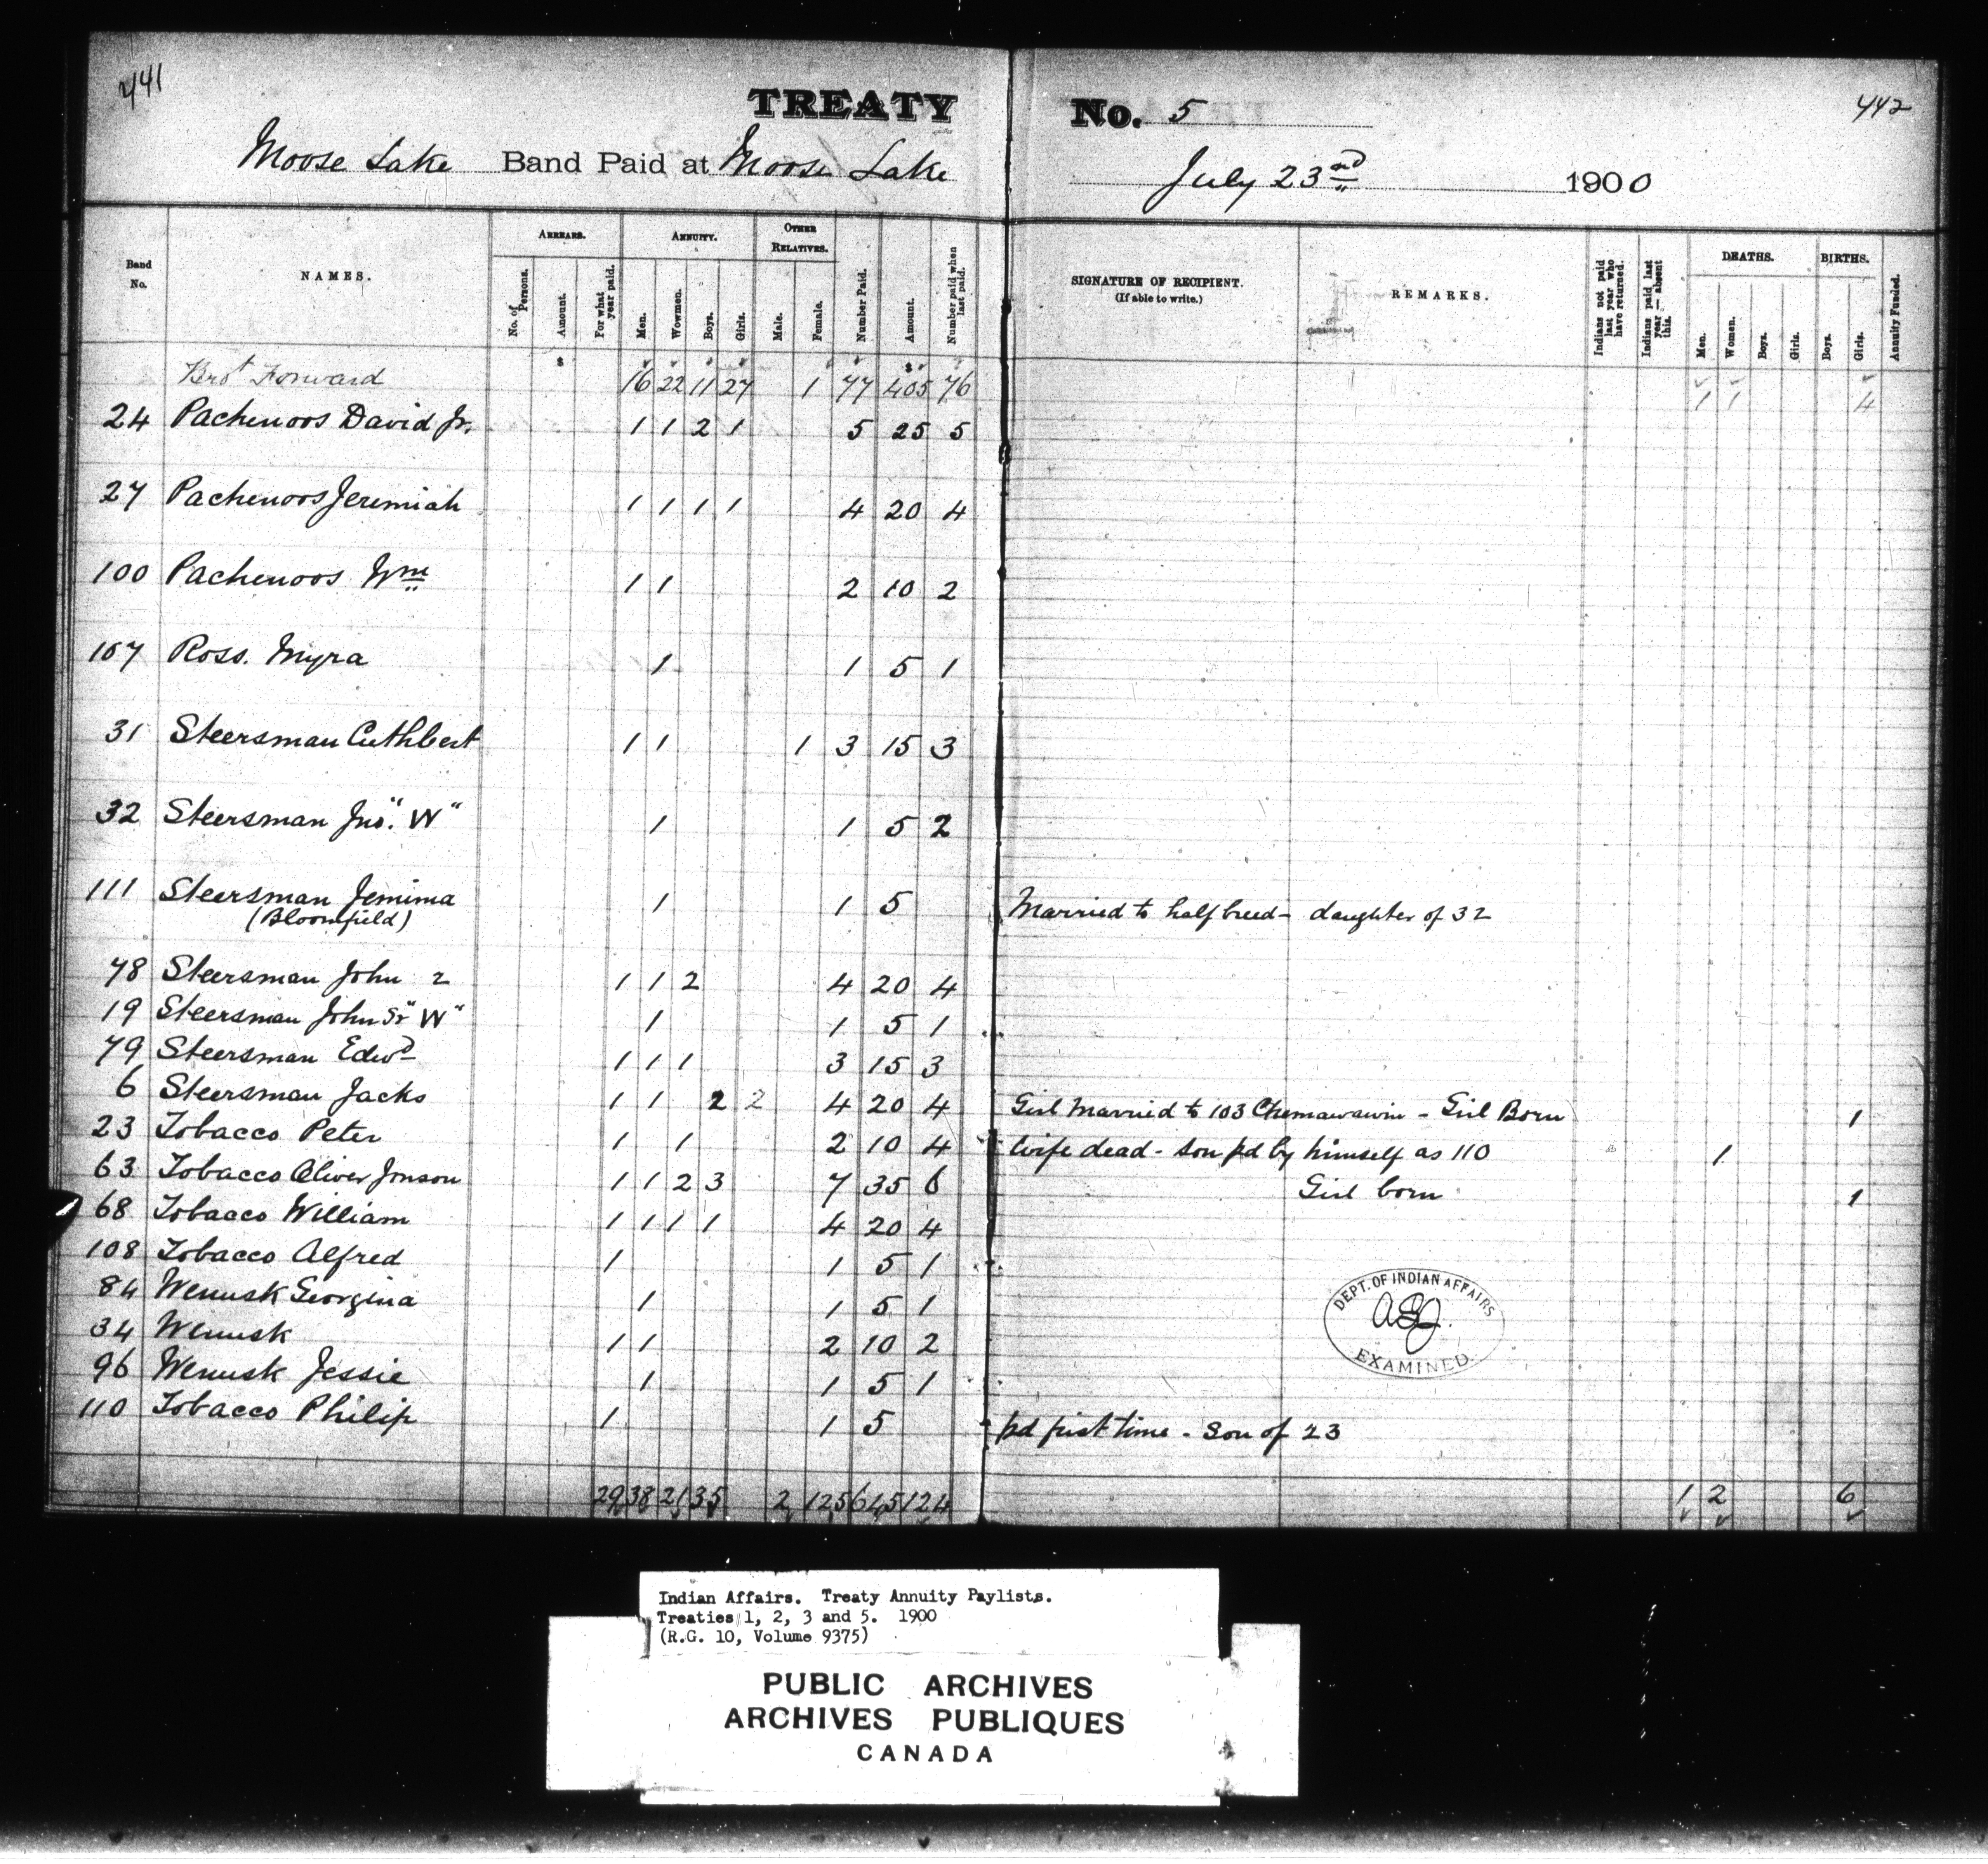 441
TREATY No. 5
442
Moose Lake Band Paid at Moose Lake July 23nd 1900
Band No. NAMES. ARREARS. No. of Persons. Amount. For what year paid. ANNUITY. Men. Wowmen. Boys. Girls. OTHER RELATIVES. Male. Female. Number Paid. Amount. Number paid when last paid. SIGNATURE OF RECIPIENT. (If able to write.) REMARKS. Indians not paid last year who have returned. Indians paid last year — absent this. DEATHS. Men. Women. Boys. Girls. BIRTHS. Boys. Girls. Annuity Funded.
Brot Forward 16 22 11 27 1 77 405 76 1 1 4
24 Pachenoos David Jr. 1 1 2 1 5 25 5
27 Pachenoos Jeremiah 1 1 1 1 4 20 4
100 Pachenoos Wm 1 1 2 10 2
107 Ross. Myra 1 1 5 1
31 Steersman Cuthbert 1 1 1 3 15 3
32 Steersman Jno. "W" 1 1 5 2
111 Steersman Jemima 1 1 5 Married to half breed - daughter of 32
(Bloomfield)
78 Steersman John 2 1 1 2 4 20 4
19 Steersman John Sr "W" 1 1 5 1
79 Steersman Edwd 1 1 1 3 15 3
6 Steersman Jacks 1 1 2 2 4 20 4 Girl Married to 103 Chemawawin - Girl Born 1
23 Tobacco Peter 1 1 2 10 4 Wife dead - son pd by himself as 110 1
63 Tobacco Oliver Jonson 1 1 2 3 7 35 6 Girl born 1
68 Tobacco William 1 1 1 1 4 20 4
108 Tobacco Alfred 1 1 5 1
84 Wenusk Georgina 1 1 5 1
34 Wenusk 1 1 2 10 2
96 Wenusk Jessie 1 1 5 1
110 Tobacco Philip 1 1 5 pd first time - Son of 23
DEPT. OF INDIAN AFFAIRS
EXAMINED
29 38 21 35 2 125 645 124 1 2 6
Indian Affairs. Treaty Annuity Paylists.
Treaties 1, 2, 3 and 5. 1900
(R.G. 10, Volume 9375)
PUBLIC ARCHIVES
ARCHIVES PUBLIQUES
CANADA